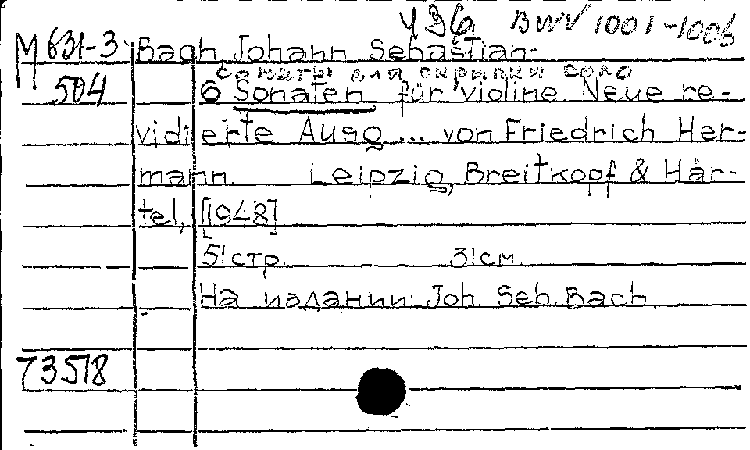 BWV 1001-1006
M 631-3 Bach, Johann Sebastian.
504
Сонаты для скрипки соло
6 Sonaten für Violine. Neue re-
vidierte Ausg... von Friedrich Her-
mann. Leipzig, Breitkopf & Här-
tel, [1948]
51 стр. 31 см.
На издании: Joh. Seb. Bach.
73518